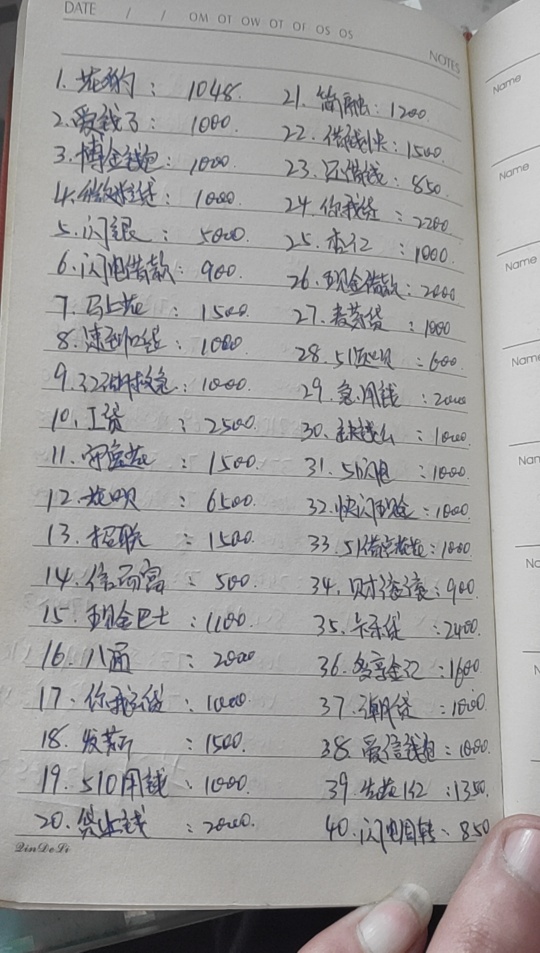 DATE / / OM OT OW OT OF OS OS
NOTES
1. 花豹 : 1048.
2. 爱钱了 : 1000.
3. 博金钱包 : 1000.
4. : 1000.
5. 闪银 : 5000.
6. 闪电借款 : 900.
7. 马上花 : 1500.
8. : 1000.
9. 救急 : 1000.
10. 工资 : 2500.
11. : 1500.
12. 花呗 : 6500.
13. 招联 : 1500.
14. 信而富 : 500.
15. 现金巴士 : 1100
16. 八面 : 2000
17. 你我贷 : 1000.
18. 发薪 : 1500.
19. 510用钱 : 1000.
20. 贷上钱 : 2000.
21. 简融 : 1200.
22. 借钱快 : 1500.
23. 还借钱 : 850.
24. 你我贷 : 2200.
25. 杏仁 : 1000.
26. 现金借款 : 2000
27. 麦芽贷 : 1000
28. 51返呗 : 600.
29. 急用钱 : 2000
30. 缺钱么 : 1000.
31. 51闪电 : 1000.
32. 快闪现金 : 1000.
33. 51借点花花 : 1000
34. 财滚滚 : 900.
35. 卡乐贷 : 2400.
36. 多享金记 : 1600
37. 潮贷 : 1000.
38. 爱信钱包 : 1000.
39. 生花1亿 : 1350.
40. 闪电周转 : 850
QinDeLi
Name
Name
Name
Name
Nam
Na